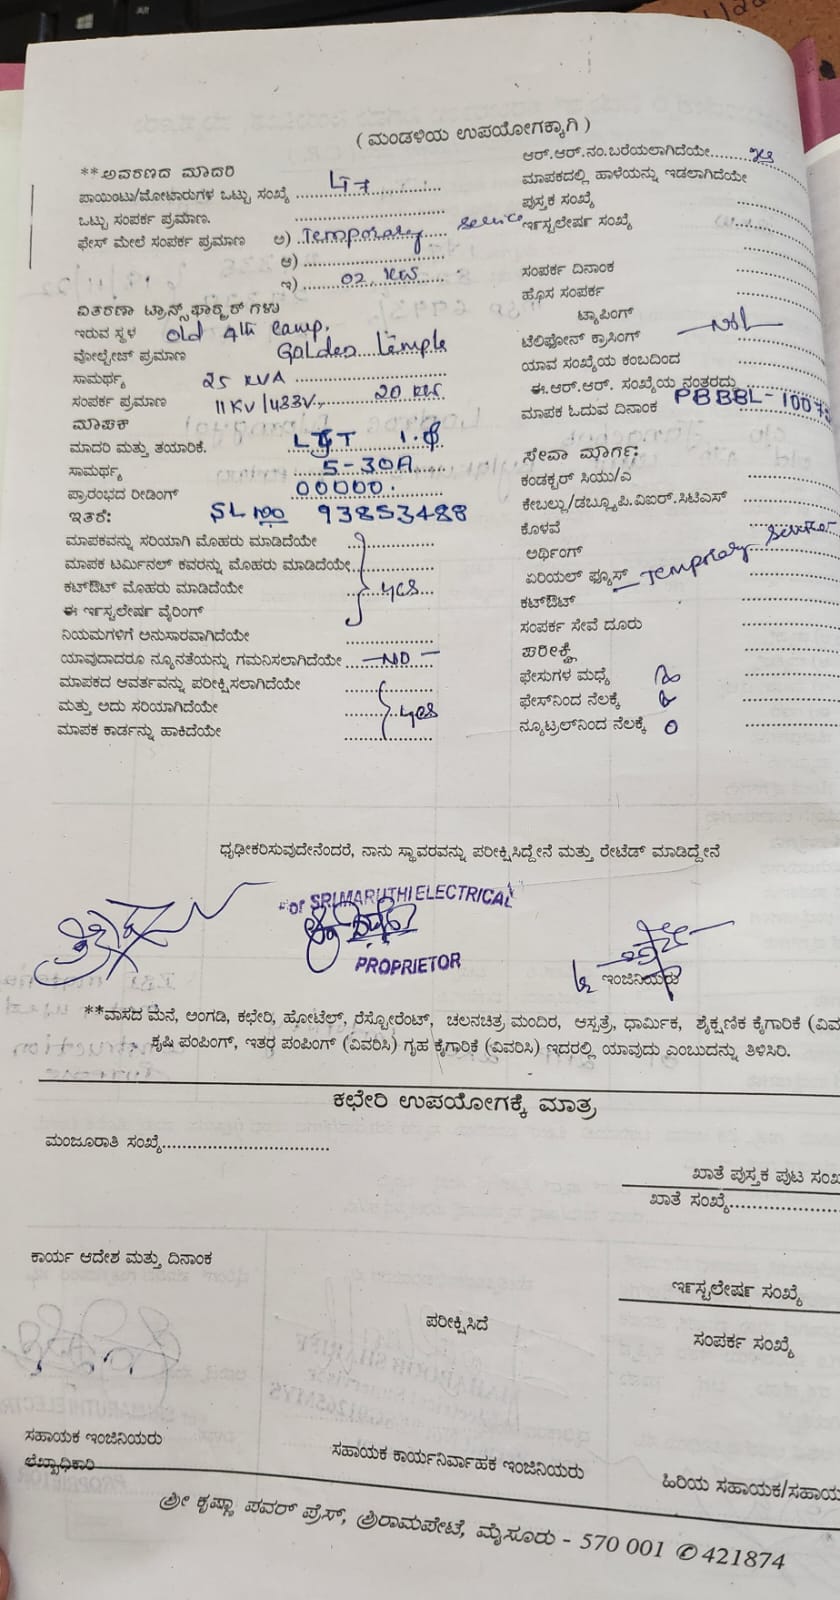 ( ಮಂಡಳಿಯ ಉಪಯೋಗಕ್ಕಾಗಿ )
**ಅವರಣದ ಮಾದರಿ
ಪಾಯಿಂಟು/ಮೋಟಾರುಗಳ ಒಟ್ಟು ಸಂಖ್ಯೆ ........ LT 7
ಒಟ್ಟು ಸಂಪರ್ಕ ಪ್ರಮಾಣ. ........
ಫೇಸ್ ಮೇಲೆ ಸಂಪರ್ಕ ಪ್ರಮಾಣ ಅ) Temporary Service
ಆ) ........
ಇ) 02 KW
ವಿತರಣಾ ಟ್ರಾನ್ಸ್‌ಫಾರ್ಮರ್‌ಗಳು
ಇರುವ ಸ್ಥಳ Old 4th Camp.
ವೋಲ್ಟೇಜ್ ಪ್ರಮಾಣ Golden Temple
ಸಾಮರ್ಥ್ಯ 25 KVA ........
ಸಂಪರ್ಕ ಪ್ರಮಾಣ 11 KV/433V. 20 KW
ಮಾಪಕ
ಮಾದರಿ ಮತ್ತು ತಯಾರಿಕೆ. L&T 1.ϕ
ಸಾಮರ್ಥ್ಯ 5-30A
ಪ್ರಾರಂಭದ ರೀಡಿಂಗ್ 00000.
ಇತರೆ: SL no 93853488
ಮಾಪಕವನ್ನು ಸರಿಯಾಗಿ ಮೊಹರು ಮಾಡಿದೆಯೇ
ಮಾಪಕ ಟರ್ಮಿನಲ್ ಕವರನ್ನು ಮೊಹರು ಮಾಡಿದೆಯೇ
ಕಟ್‌ಔಟ್ ಮೊಹರು ಮಾಡಿದೆಯೇ yes
ಈ ಇನ್‌ಸ್ಟಲೇಷನ್ ವೈರಿಂಗ್
ನಿಯಮಗಳಿಗೆ ಅನುಸಾರವಾಗಿದೆಯೇ ........
ಯಾವುದಾದರೂ ನ್ಯೂನತೆಯನ್ನು ಗಮನಿಸಲಾಗಿದೆಯೇ —NO—
ಮಾಪಕದ ಆವರ್ತವನ್ನು ಪರೀಕ್ಷಿಸಲಾಗಿದೆಯೇ
ಮತ್ತು ಅದು ಸರಿಯಾಗಿದೆಯೇ yes
ಮಾಪಕ ಕಾರ್ಡನ್ನು ಹಾಕಿದೆಯೇ
ಆರ್.ಆರ್.ನಂ.ಬರೆಯಲಾಗಿದೆಯೇ........
ಮಾಪಕದಲ್ಲಿ ಹಾಳೆಯನ್ನು ಇಡಲಾಗಿದೆಯೇ
ಪುಸ್ತಕ ಸಂಖ್ಯೆ ........
ಇನ್‌ಸ್ಟಲೇಷನ್ ಸಂಖ್ಯೆ ........
ಸಂಪರ್ಕ ದಿನಾಂಕ ........
ಹೊಸ ಸಂಪರ್ಕ ........
ಟ್ಯಾಪಿಂಗ್ ........
ಟೆಲಿಫೋನ್ ಕ್ರಾಸಿಂಗ್ —Nil—
ಯಾವ ಸಂಖ್ಯೆಯ ಕಂಬದಿಂದ
ಈ.ಆರ್.ಆರ್. ಸಂಖ್ಯೆಯ ನಂತರದ್ದು ........
ಮಾಪಕ ಓದುವ ದಿನಾಂಕ PBBBL-1007
ಸೇವಾ ಮಾರ್ಗ:
ಕಂಡಕ್ಟರ್ ಸಿಯು/ಎ ........
ಕೇಬಲ್ಲು/ಡಬ್ಲ್ಯೂಪಿ.ವಿಐಆರ್.ಸಿಟಿಎಸ್ ........
ಕೊಳವೆ ........
ಅರ್ಥಿಂಗ್ ........
ಏರಿಯಲ್ ಫ್ಯೂಸ್ — Temporary Service
ಕಟ್‌ಔಟ್ ........
ಸಂಪರ್ಕ ಸೇವೆ ದೂರು ........
ಪರೀಕ್ಷೆ
ಫೇಸುಗಳ ಮಧ್ಯೆ ........
ಫೇಸ್‌ನಿಂದ ನೆಲಕ್ಕೆ ........
ನ್ಯೂಟ್ರಲ್‌ನಿಂದ ನೆಲಕ್ಕೆ 0
ಧೃಢೀಕರಿಸುವುದೇನೆಂದರೆ, ನಾನು ಸ್ಥಾವರವನ್ನು ಪರೀಕ್ಷಿಸಿದ್ದೇನೆ ಮತ್ತು ರೇಟೆಡ್ ಮಾಡಿದ್ದೇನೆ
For SRI MARUTHI ELECTRICAL
PROPRIETOR
ಇಂಜಿನಿಯರು
**ವಾಸದ ಮನೆ, ಅಂಗಡಿ, ಕಛೇರಿ, ಹೋಟೆಲ್, ರೆಸ್ಟೋರೆಂಟ್, ಚಲನಚಿತ್ರ ಮಂದಿರ, ಆಸ್ಪತ್ರೆ, ಧಾರ್ಮಿಕ, ಶೈಕ್ಷಣಿಕ ಕೈಗಾರಿಕೆ (ವಿವ
ಕೃಷಿ ಪಂಪಿಂಗ್, ಇತರ ಪಂಪಿಂಗ್ (ವಿವರಿಸಿ) ಗೃಹ ಕೈಗಾರಿಕೆ (ವಿವರಿಸಿ) ಇದರಲ್ಲಿ ಯಾವುದು ಎಂಬುದನ್ನು ತಿಳಿಸಿರಿ.
ಕಛೇರಿ ಉಪಯೋಗಕ್ಕೆ ಮಾತ್ರ
ಮಂಜೂರಾತಿ ಸಂಖ್ಯೆ........
ಖಾತೆ ಪುಸ್ತಕ ಪುಟ ಸಂಖ
ಖಾತೆ ಸಂಖ್ಯೆ........
ಕಾರ್ಯ ಆದೇಶ ಮತ್ತು ದಿನಾಂಕ
ಇನ್‌ಸ್ಟಲೇಷನ್ ಸಂಖ್ಯೆ
ಪರೀಕ್ಷಿಸಿದೆ
ಸಂಪರ್ಕ ಸಂಖ್ಯೆ
ಸಹಾಯಕ ಇಂಜಿನಿಯರು
ಲೆಖ್ಖಾಧಿಕಾರಿ
ಸಹಾಯಕ ಕಾರ್ಯನಿರ್ವಾಹಕ ಇಂಜಿನಿಯರು
ಹಿರಿಯ ಸಹಾಯಕ/ಸಹಾಯ
ಶ್ರೀ ಕೃಷ್ಣಾ ಪವರ್ ಪ್ರೆಸ್, ಶ್ರೀರಾಮಪೇಟೆ, ಮೈಸೂರು - 570 001 ✆421874